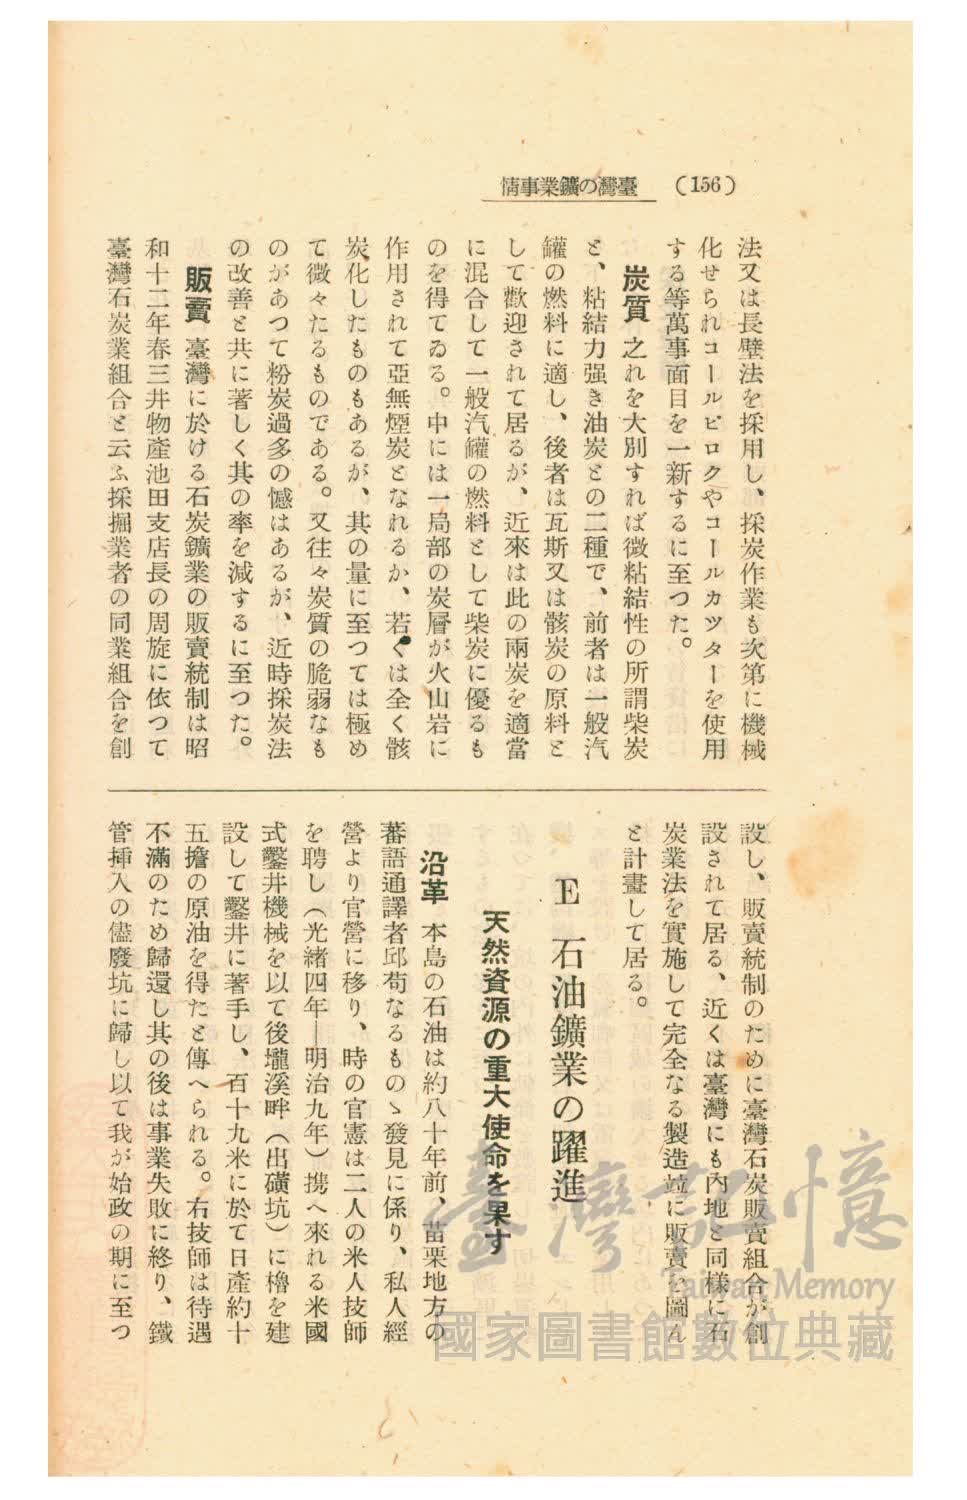 (156) 臺灣の鑛業事情
法又は長壁法を採用し、採炭作業も次第に機械
化せられコールピロクやコールカツターを使用
する等萬事面目を一新するに至つた。
炭質 之れを大別すれば微粘結性の所謂柴炭
と、粘結力强き油炭との二種で、前者は一般汽
罐の燃料に適し、後者は瓦斯又は骸炭の原料と
して歡迎されて居るが、近來は此の兩炭を適當
に混合して一般汽罐の燃料として柴炭に優るも
のを得てゐる。中には一局部の炭層が火山岩に
作用されて亞無煙炭となれるか、若くは全く骸
炭化したものもあるが、其の量に至つては極め
て微々たるものである。又往々炭質の脆弱なも
のがあつて粉炭過多の憾はあるが、近時採炭法
の改善と共に著しく其の率を減するに至つた。
販賣 臺灣に於ける石炭鑛業の販賣統制は昭
和十二年春三井物產池田支店長の周旋に依つて
臺灣石炭業組合と云ふ採掘業者の同業組合を創
設し、販賣統制のために臺灣石炭販賣組合が創
設されて居る、近くは臺灣にも內地と同樣に石
炭業法を實施して完全なる製造竝に販賣を圖ん
と計畫して居る。
E 石油鑛業の躍進
天然資源の重大使命を果す
沿革 本島の石油は約八十年前、苗栗地方の
蕃語通譯者邱苟なるものゝ發見に係り、私人經
營より官營に移り、時の官憲は二人の米人技師
を聘し(光緖四年—明治九年)携へ來れる米國
式鑿井機械を以て後壠溪畔(出磺坑)に櫓を建
設して鑿井に著手し、百十九米に於て日產約十
五擔の原油を得たと傳へられる。右技師は待遇
不滿のため歸還し其の後は事業失敗に終り、鐵
管揷入の儘廢坑に歸し以て我が始政の期に至つ
臺灣記憶
Taiwan Memory
國家圖書館數位典藏